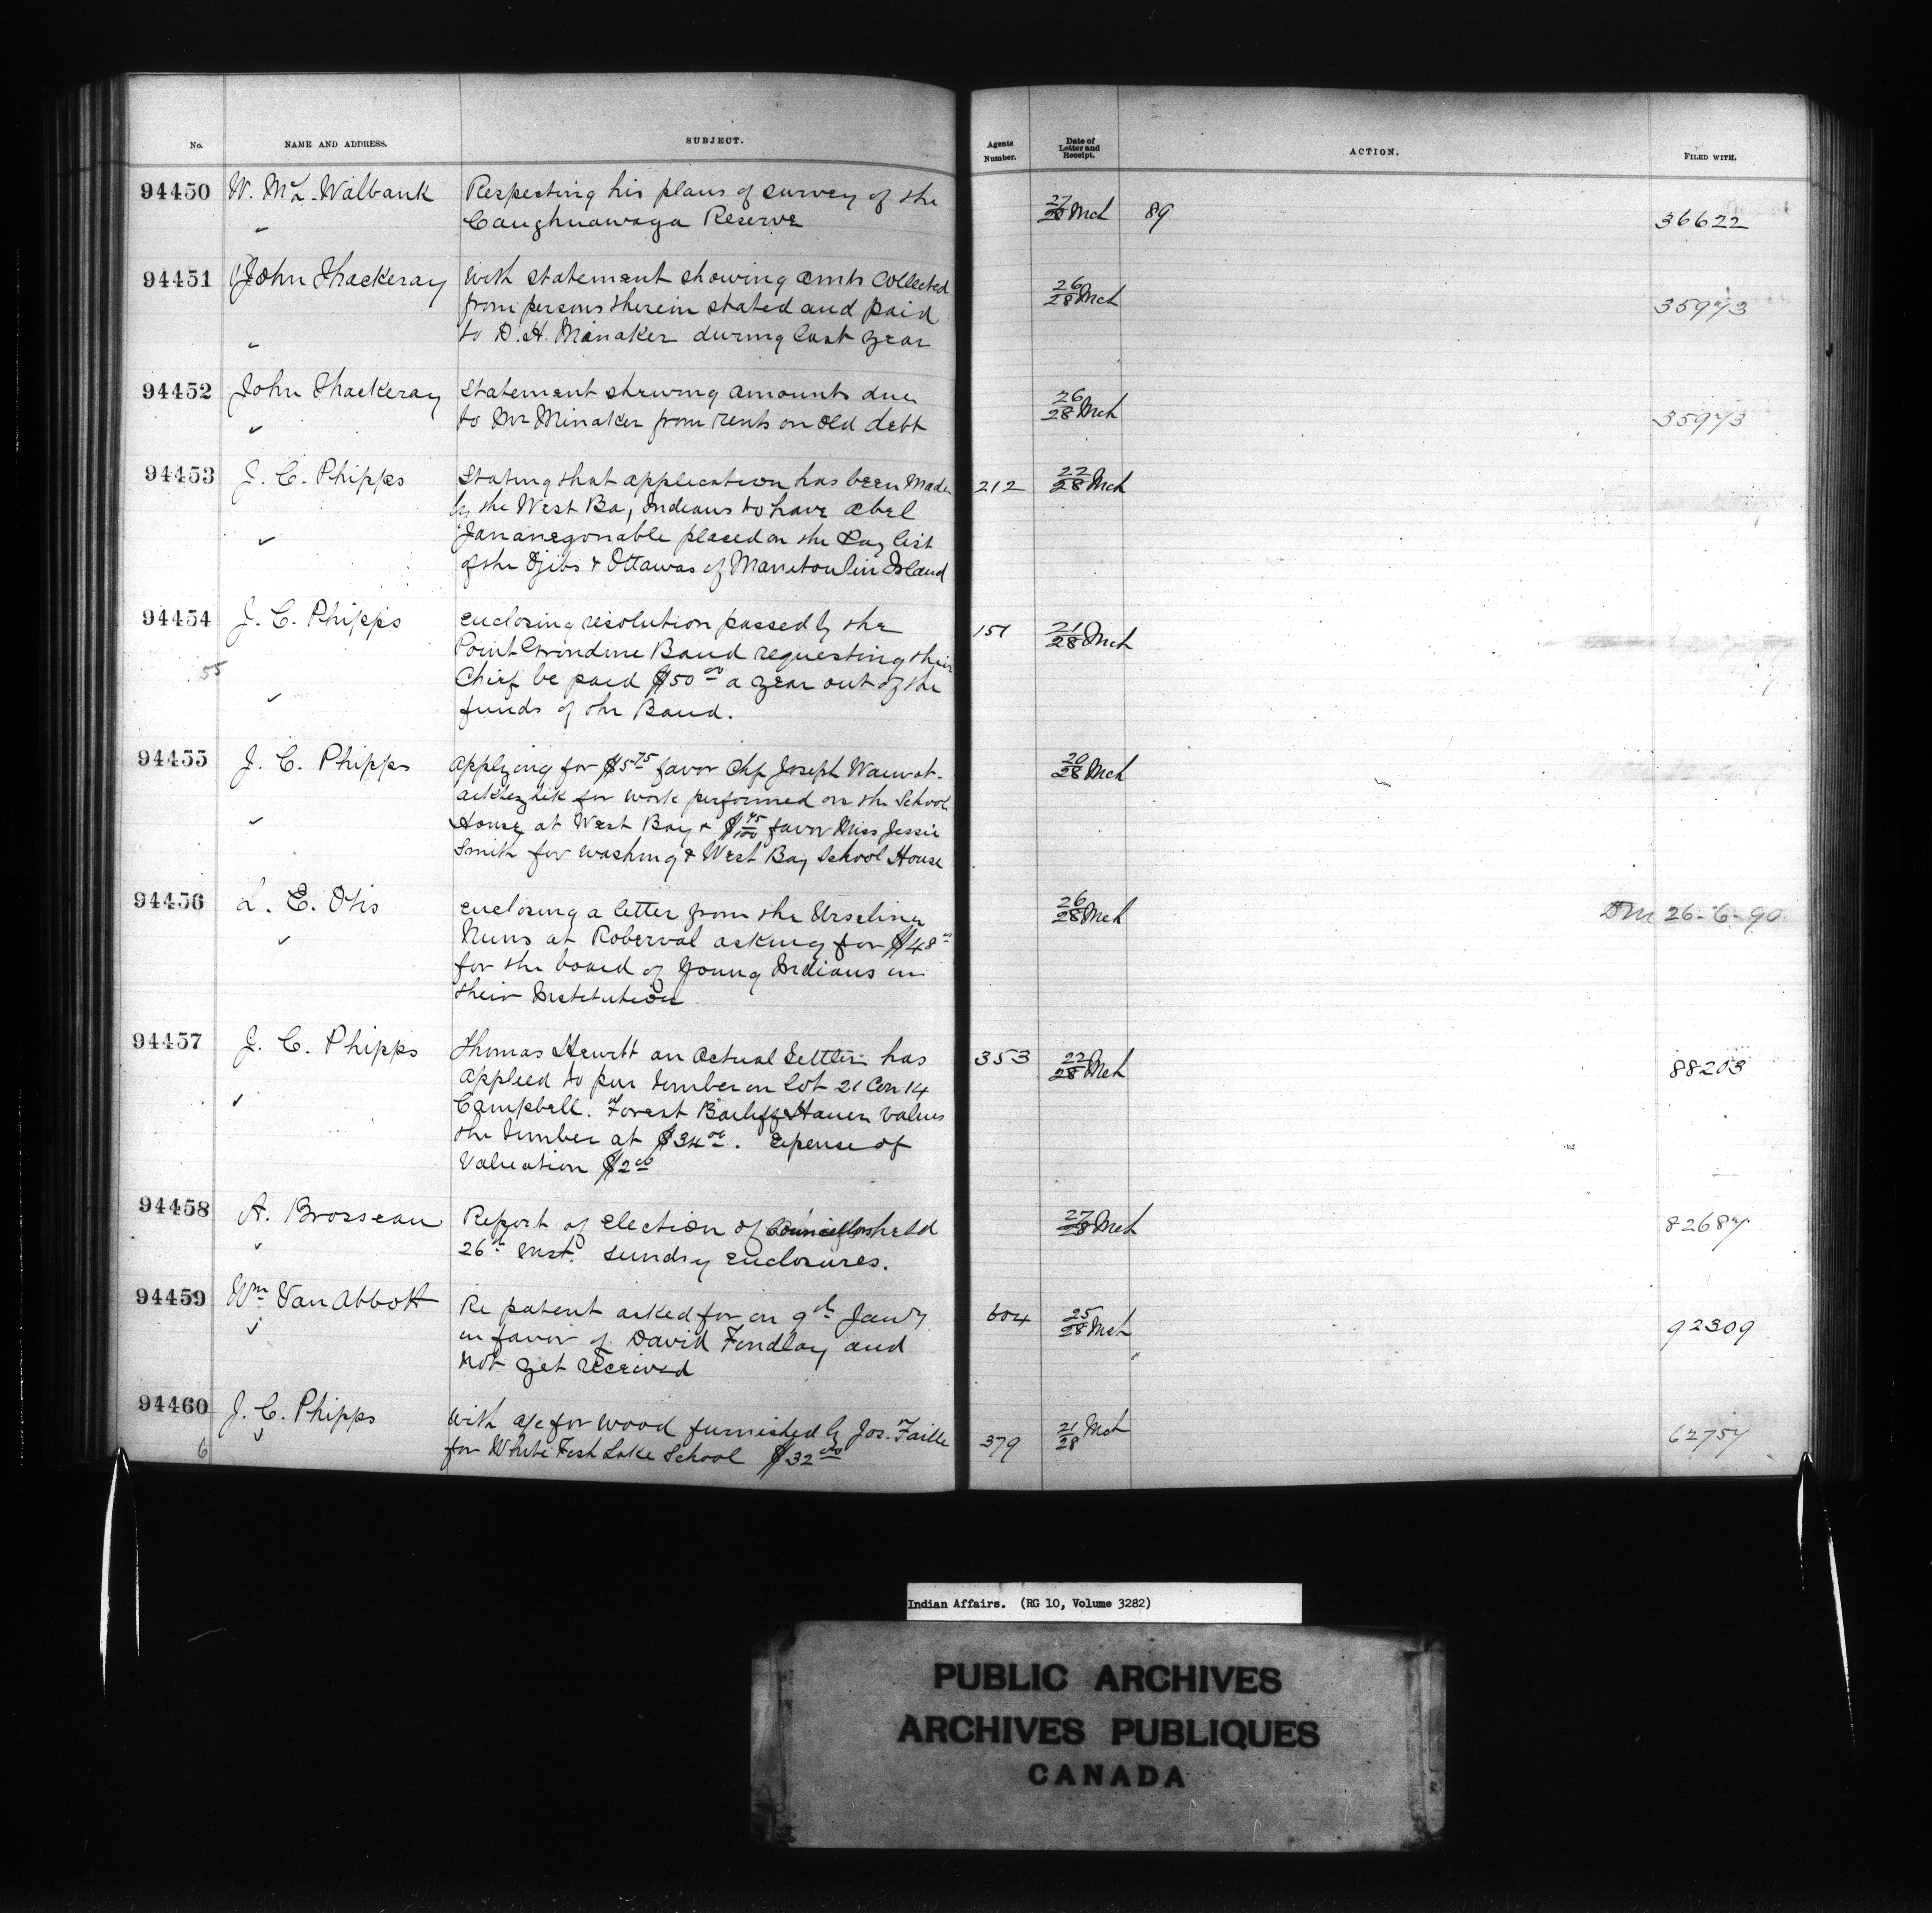 No. NAME AND ADDRESS. SUBJECT. Agents Number. Date of Letter and Receipt. ACTION. FILED WITH.
94450 W. McL. Walbank Respecting his plans of survey of the 27/28 Mch 89 36622
Caughnawaga Reserve
94451 John Thackeray With statement showing amts collected 26/28 Mch 35973
from persons therein stated and paid
to D. H. Minaker during last year
94452 John Thackeray Statement shewing amounts due 26/28 Mch 35973
to Mr Minaker from rents on old debt
94453 J. C. Phipps Stating that application has been made 212 22/28 Mch
by the West Bay Indians to have Abel
placed on the Pay list
of the Ojibs & Ottawas of Manitoulin Island
94454 J. C. Phipps enclosing resolution passed by the 151 21/28 Mch
Point Grondine Band requesting their
55 Chief be paid $50 00 a year out of the
funds of the Band.
94455 J. C. Phipps Applying for $5 75 favor Chf Joseph 20/28 Mch
for work performed on the School
House at West Bay & $ 75/100 favor Miss Jessie
Smith for washing & West Bay School House
94456 L. E. Otis enclosing a letter from the Ursuline 26/28 Mch 26-6-90
Nuns at Roberval asking for $48
for the board of young Indians in
their Institution
94457 J. C. Phipps Thomas Hewitt an Actual Settler has 353 22/28 Mch 88203
applied to pur timber on Lot 21 Con 14
Campbell. Forest Bailiff values
the timber at $34 00. Expense of
Valuation $2 00
94458 A. Brosseau Report of election of Councillors held 27/28 Mch 82687
26th inst. Sundry enclosures.
94459 Wm Van Abbott Re patent asked for on 9th Jany 604 25/28 Mch 92309
in favor of David Findlay and
not yet received
94460 J. C. Phipps With a/c for wood furnished by Jos. Faille 379 21/28 Mch 62757
6 for White Fish Lake School $32 00
Indian Affairs. (RG 10, Volume 3282)
PUBLIC ARCHIVES
ARCHIVES PUBLIQUES
CANADA